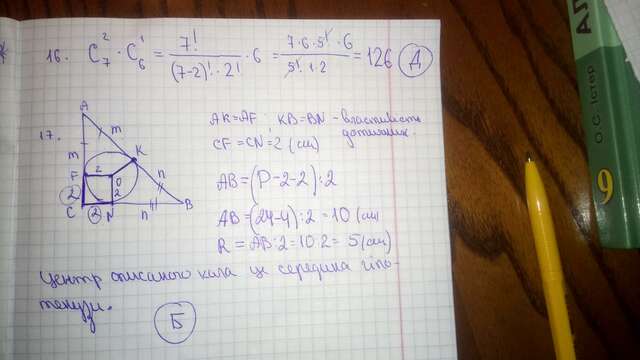 16. C₇² · C₆¹ = 7! / (7-2)! · 2! · 6 = 7·6·5!·6 / 5!·1·2 = 126 (Д)
17.
A
m
m
K
F
2
O
2
n
2
C
2
N
n
B
AK=AF; KB=BN - властивість
дотичних.
CF=CN=2 (см)
AB=(P-2-2):2
AB=(24-4):2=10 (см)
R=AB:2=10:2=5(см)
Центр описаного кола це середина гіпо-
тенузи.
Б
О.С. Істер
9